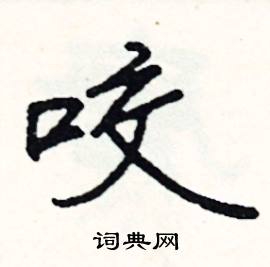 咬
词典网